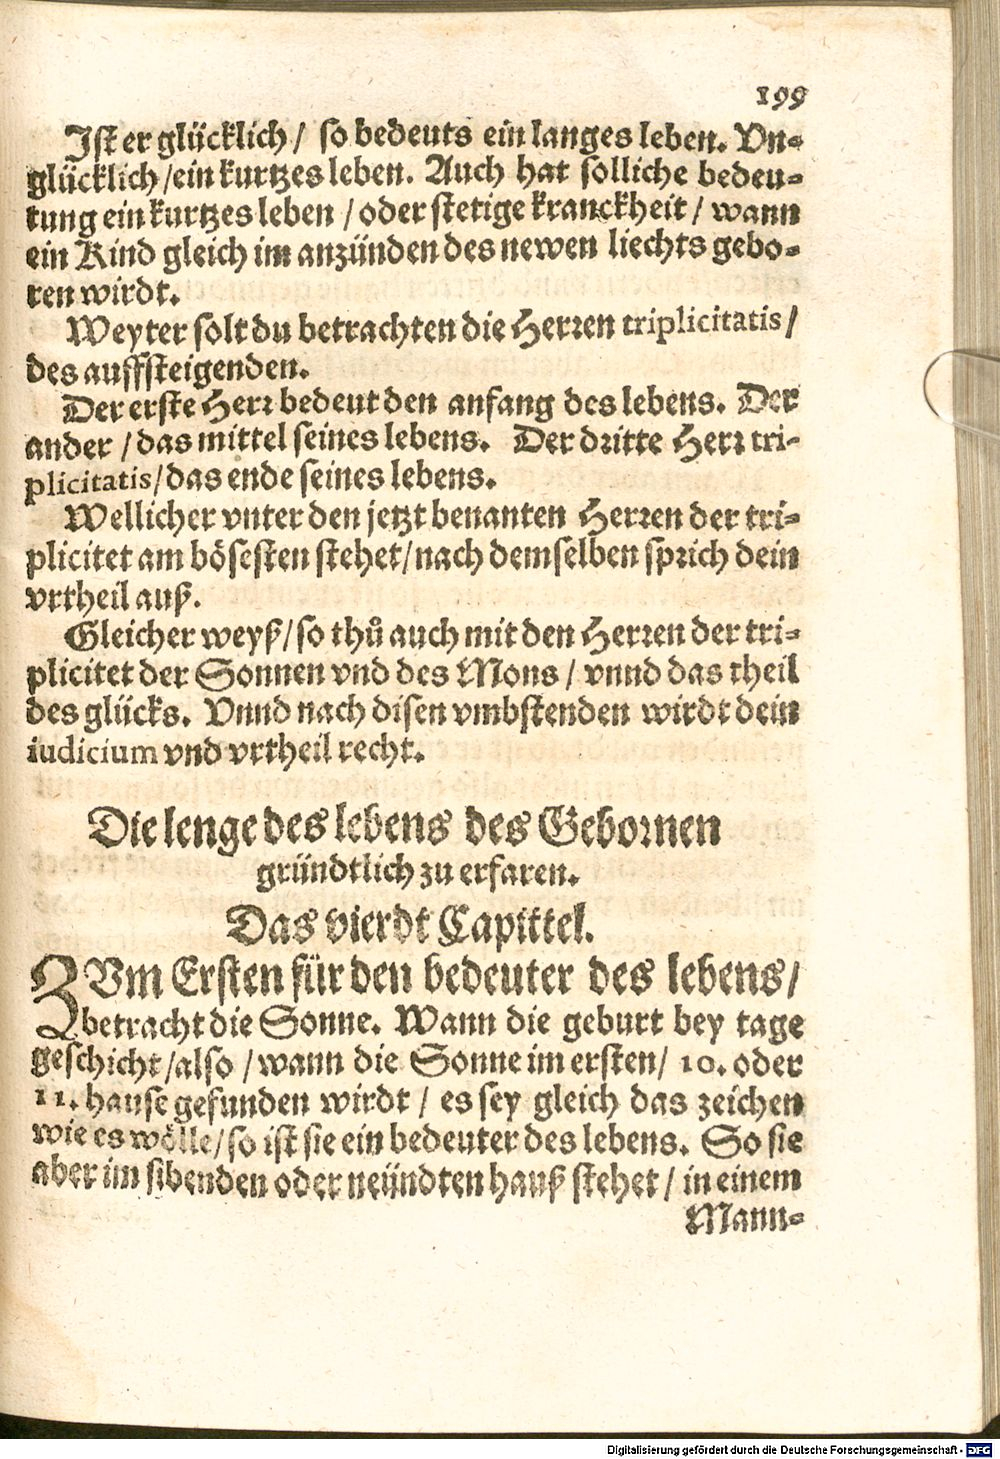 199
Ist er glücklich / so bedeuts ein langes leben. Vn⸗
glücklich / ein kurtzes leben. Auch hat solliche bedeu⸗
tung ein kurtzes leben / oder stetige kranckheit / wann
ein Kind gleich im anzünden des newen liechts gebo⸗
ren wirdt.
Weyter solt du betrachten die Herren triplicitatis /
des auffsteigenden.
Der erste Herr bedeut den anfang des lebens. Der
ander / das mittel seines lebens. Der dritte Herr tri-
plicitatis / das ende seines lebens.
Wellicher vnter den jetzt benanten Herren der tri⸗
plicitet am bösesten stehet / nach demselben sprich dein
vrtheil auß.
Gleicher weyß / so thů auch mit den Herren der tri⸗
plicitet der Sonnen vnd des Mons / vnnd das theil
des glücks. Vnnd nach disen vmbstenden wirdt dein
iudicium vnd vrtheil recht.
Die lenge des lebens des Gebornen
gründtlich zu erfaren.
Das vierdt Capittel.
ZVm Ersten für den bedeuter des lebens /
betracht die Sonne. Wann die geburt bey tage
geschicht / also / wann die Sonne im ersten / 10. oder
11. hause gefunden wirdt / es sey gleich das zeichen
wie es wölle / so ist sie ein bedeuter des lebens. So sie
aber im sibenden oder neündten hauß stehet / in einem
Mann⸗
Digitalisierung gefördert durch die Deutsche Forschungsgemeinschaft - DFG